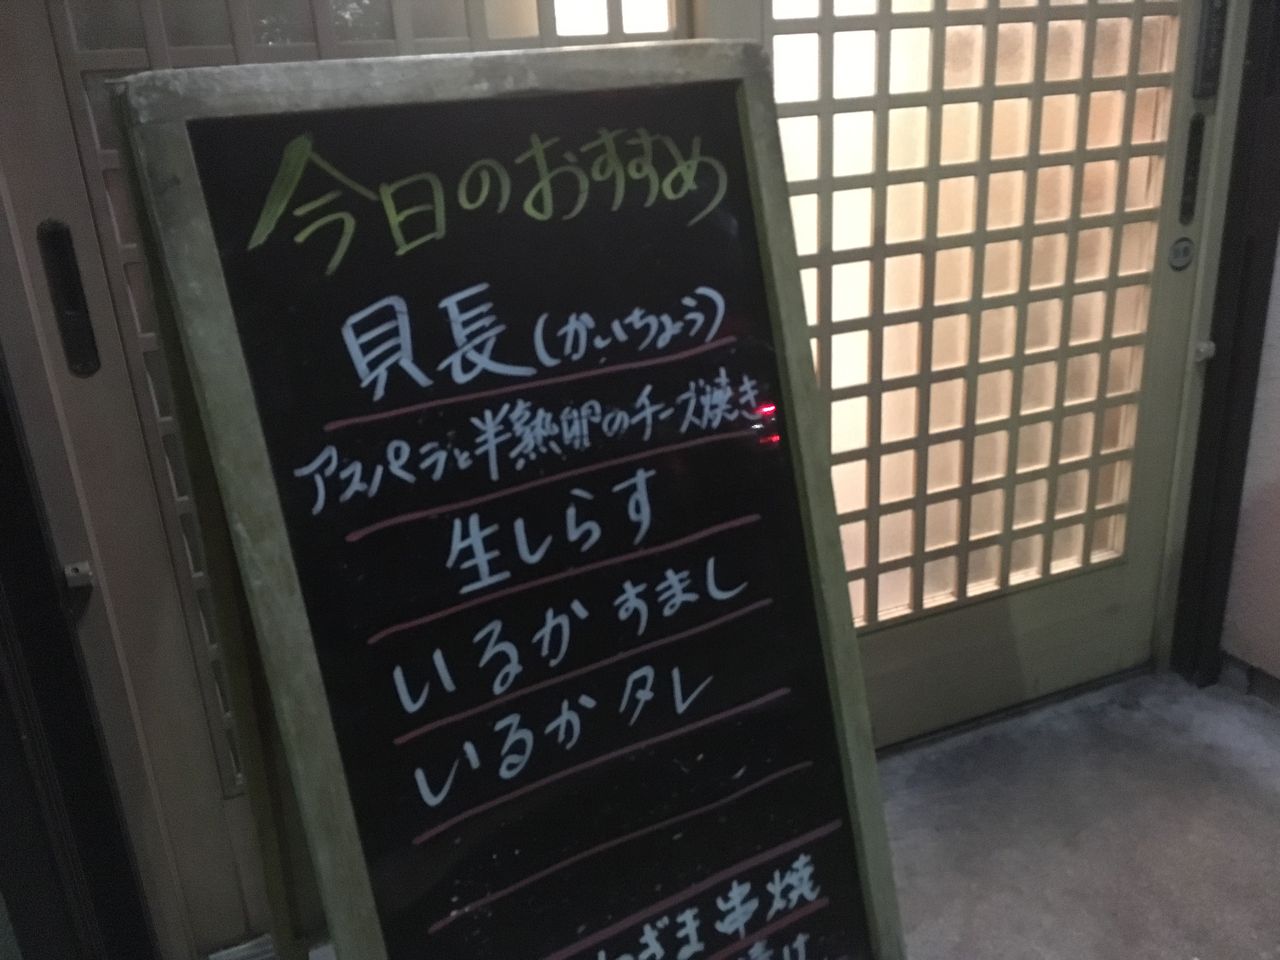 今日のおすすめ
貝長(かいちょう)
アスパラと半熟卵のチーズ焼き
生しらす
いるか すまし
いるか タレ
ねぎま串焼